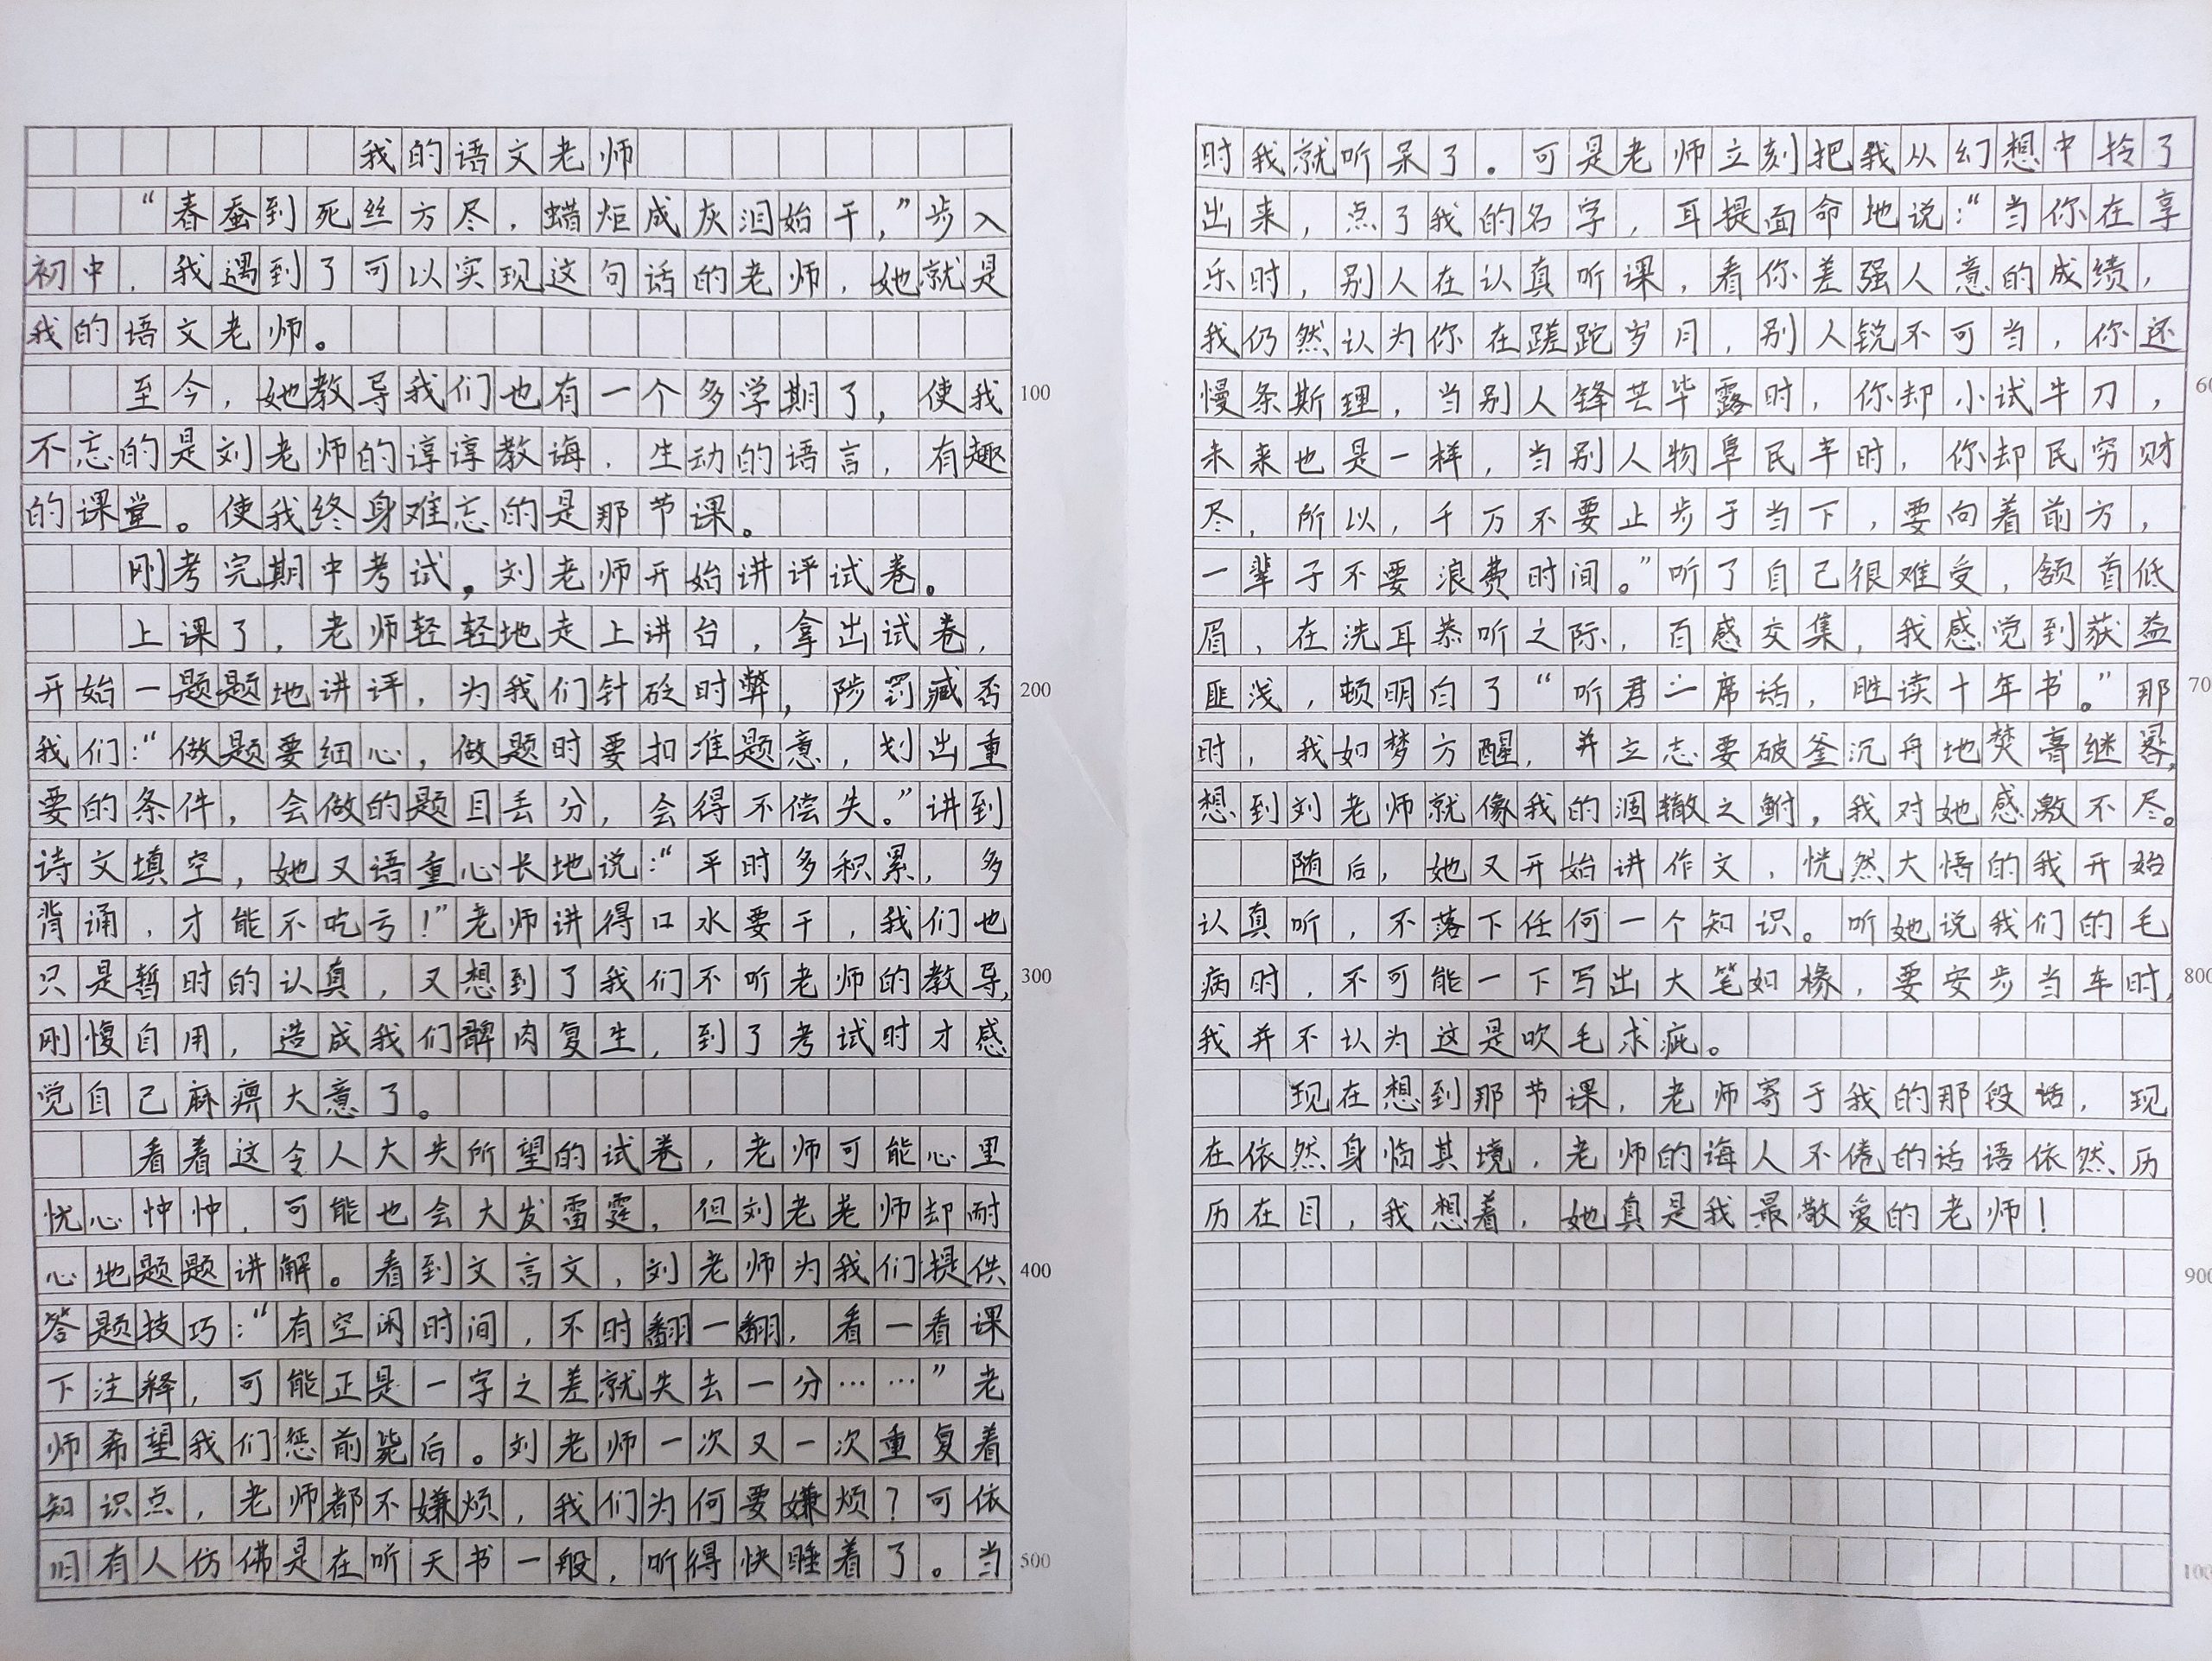 我的语文老师
“春蚕到死丝方尽，蜡炬成灰泪始干，”步入
初中，我遇到了可以实现这句话的老师，她就是
我的语文老师。
至今，她教导我们也有一个多学期了，使我
不忘的是刘老师的谆谆教诲，生动的语言，有趣
的课堂。使我终身难忘的是那节课。
刚考完期中考试，刘老师开始讲评试卷。
上课了，老师轻轻地走上讲台，拿出试卷，
开始一题题地讲评，为我们针砭时弊，陟罚臧否
我们：“做题要细心，做题时要扣准题意，划出重
要的条件，会做的题目丢分，会得不偿失。”讲到
诗文填空，她又语重心长地说：“平时多积累，多
背诵，才能不吃亏！”老师讲得口水要干，我们也
只是暂时的认真，又想到了我们不听老师的教导，
刚愎自用，造成我们髀肉复生，到了考试时才感
觉自己麻痹大意了。
看着这令人大失所望的试卷，老师可能心里
忧心忡忡，可能也会大发雷霆，但刘老老师却耐
心地题题讲解。看到文言文，刘老师为我们提供
答题技巧：“有空闲时间，不时翻一翻，看一看课
下注释，可能正是一字之差就失去一分……”老
师希望我们惩前毖后。刘老师一次又一次重复着
知识点，老师都不嫌烦，我们为何要嫌烦？可依
旧有人仿佛是在听天书一般，听得快睡着了。当
时我就听呆了。可是老师立刻把我从幻想中拎了
出来，点了我的名字，耳提面命地说：“当你在享
乐时，别人在认真听课，看你差强人意的成绩，
我仍然认为你在蹉跎岁月，别人锐不可当，你还
慢条斯理，当别人锋芒毕露时，你却小试牛刀，
未来也是一样，当别人物阜民丰时，你却民穷财
尽，所以，千万不要止步于当下，要向着前方，
一辈子不要浪费时间。”听了自己很难受，颔首低
眉，在洗耳恭听之际，百感交集，我感觉到获益
匪浅，顿明白了“听君一席话，胜读十年书。”那
时，我如梦方醒，并立志要破釜沉舟地焚膏继晷，
想到刘老师就像我的涸辙之鲋，我对她感激不尽。
随后，她又开始讲作文，恍然大悟的我开始
认真听，不落下任何一个知识。听她说我们的毛
病时，不可能一下写出大笔如椽，要安步当车时，
我并不认为这是吹毛求疵。
现在想到那节课，老师寄于我的那段话，现
在依然身临其境，老师的诲人不倦的话语依然历
历在目，我想着，她真是我最敬爱的老师！
100
200
300
400
500
60
70
800
900
100